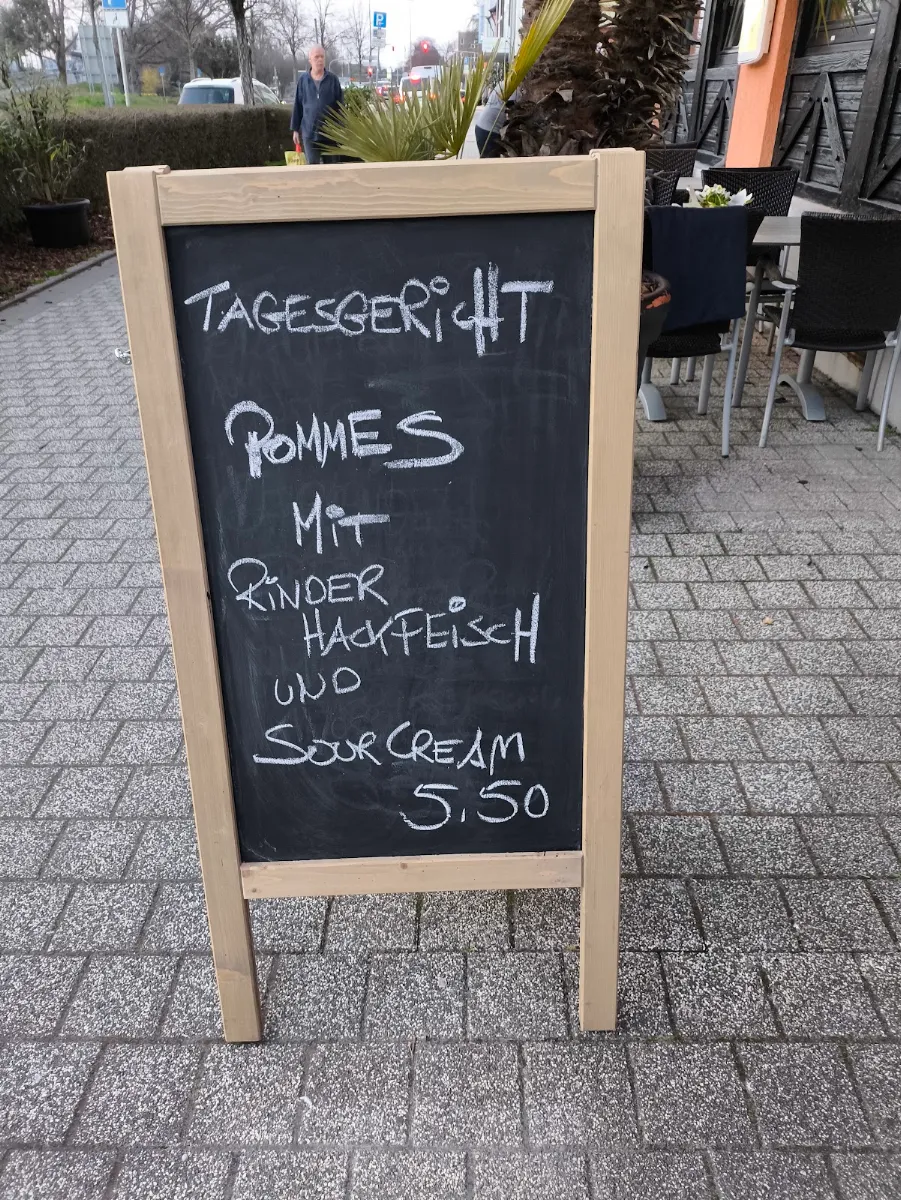 TAGESGERiCHT
POMMES
MiT
RiNDER
HACKFEiSCH
UND
SOUR CREAM
5.50
P